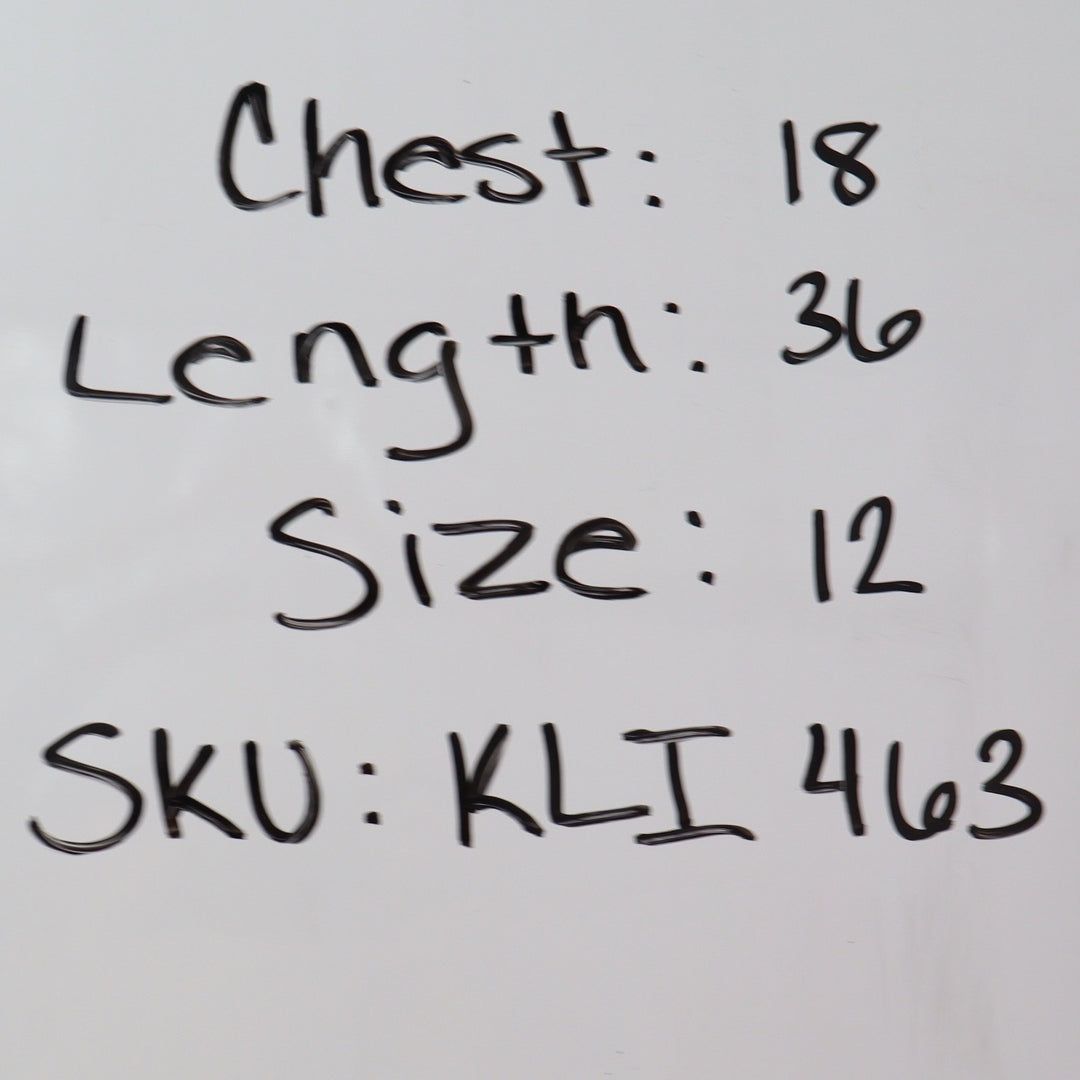 Chest: 18
Length: 36
Size: 12
SKU: KLI 463